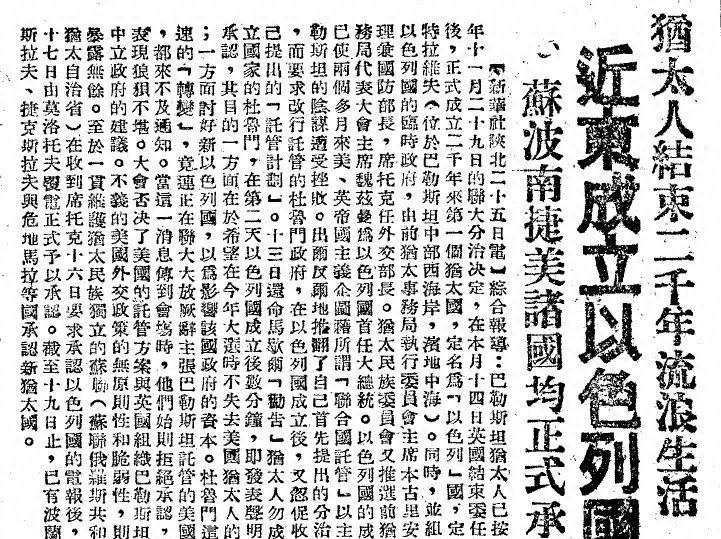 猶太人結束二千年流浪生活
近東成立以色列國
、蘇波南捷美諸國均正式承
【新華社陝北二十五日電】綜合報導：巴勒斯坦猶太人已按
年十一月二十九日的聯大分治決定，在本月十四日英國結束委任
後，正式成立二千年來第一個猶太國，定名爲「以色列」國，定
特拉維夫（位於巴勒斯坦中部西海岸，濱地中海）。同時，並組
以色列國的臨時政府，由前猶太事務局執行委員會主席本古里安
理兼國防部長，席托克任外交部長。猶太民族委員會又推選前猶
務局代表大會主席魏茲曼爲以色列國首任大總統。以色列國的成
已使兩個多月來美、英帝國主義企圖藉所謂「聯合國託管」以主
勒斯坦的陰謀遭受挫敗。出爾反爾地推翻了自己首先提出的分治
，而要求改行託管的杜魯門政府，在以色列國成立後，又忽促收
己提出的「託管計劃」。十三日還命馬歇爾「勸告」猶太人勿成
立國家的杜魯門，在第二天以色列國成立後數分鐘，即發表聲明
承認，其目的一方面在於希望在今年大選時不失去美國猶太人的
；一方面討好新以色列國，以爲影響該國政府的資本。杜魯門這
速的「轉變」，竟連正在聯大大放厥辭主張巴勒斯坦託管的美國
，都來不及通知。當這一消息傳到會場時，他們始則拒絕承認，
表現狼狽不堪。大會否決了美國的託管方案與英國組織巴勒斯坦
中立政府的建議。不義的美國外交政策的無原則性和脆弱性，則
暴露無餘。至於一貫維護猶太民族獨立的蘇聯（蘇聯俄羅斯共和
猶太自治省）在收到席托克十六日要求承認以色列國的電報後，
十七日由莫洛托夫覆電正式予以承認。截至十九日止，已有波蘭
斯拉夫、捷克斯拉夫與危地馬拉等國承認新猶太國。